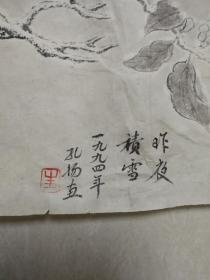 昨夜
積雪
一九九四年
孔扬直